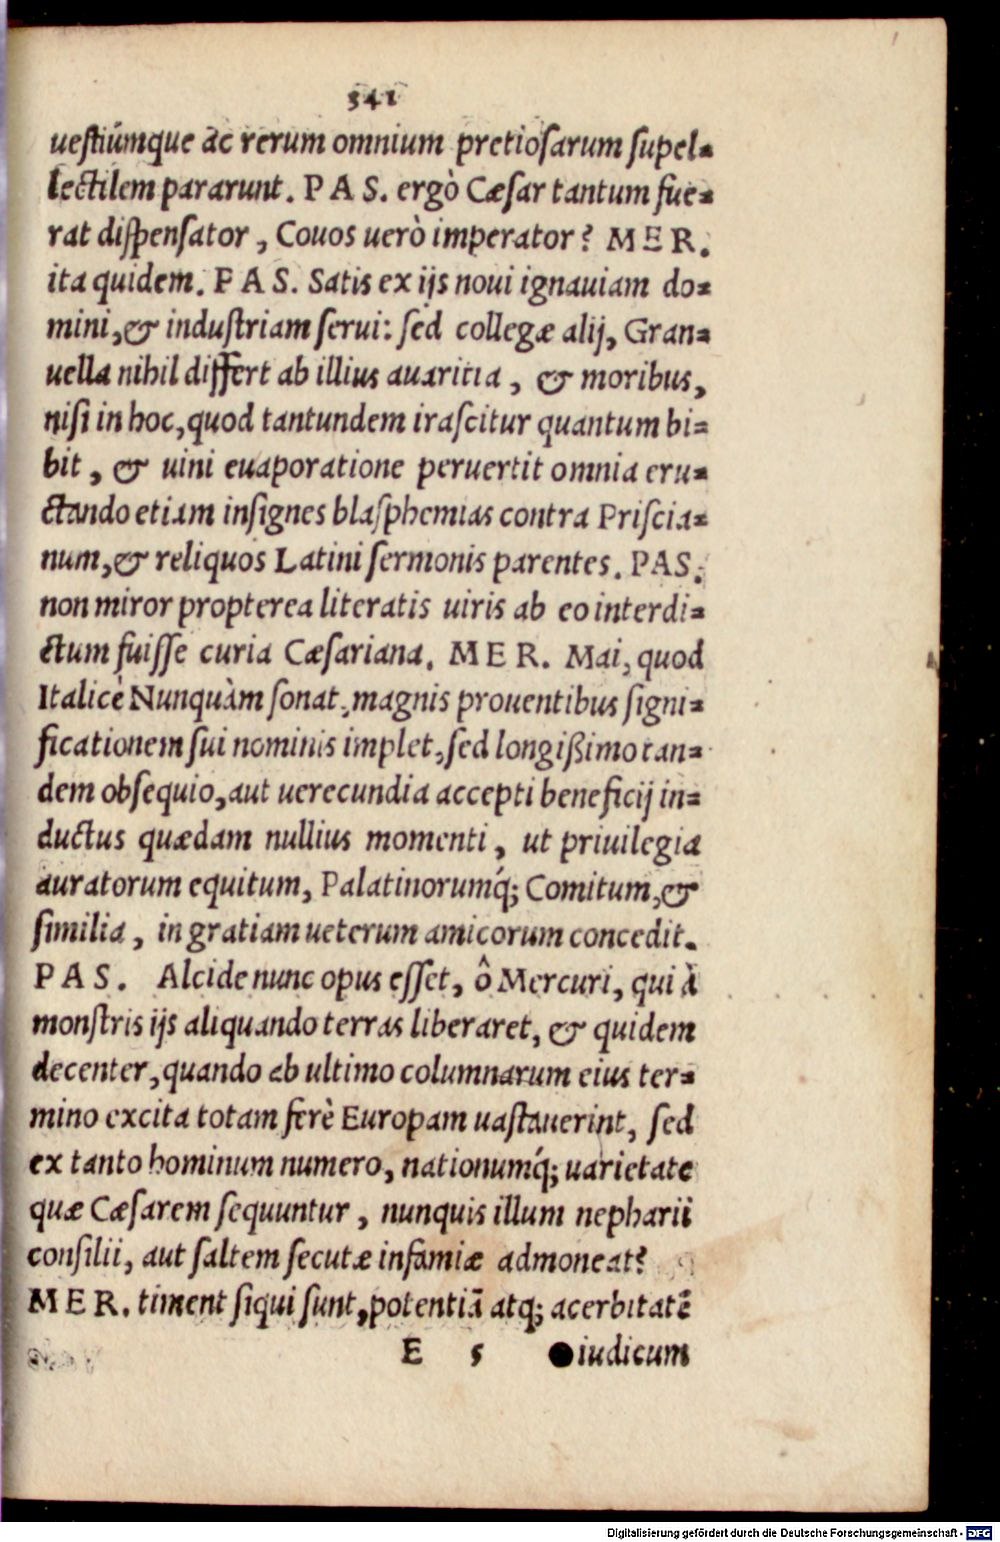 341
uestiúmque ac rerum omnium pretiosarum supel-
lectilem pararunt. PAS. ergò Cæsar tantum fue-
rat dispensator, Couos uerò imperator? MER.
ita quidem. PAS. Satis ex ijs noui ignauiam do-
mini, & industriam serui: sed collegæ alij, Gran-
uella nihil differt ab illius auaritia, & moribus,
nisi in hoc, quod tantundem irascitur quantum bi-
bit, & uini euaporatione peruertit omnia eru-
ctando etiam insignes blasphemias contra Priscia-
num, & reliquos Latini sermonis parentes. PAS.
non miror propterea literatis uiris ab eo interdi-
ctum fuisse curia Cæsariana. MER. Mai, quod
Italicè Nunquàm sonat, magnis prouentibus signi-
ficationem sui nominis implet, sed longißimo tan-
dem obsequio, aut uerecundia accepti beneficij in-
ductus quædam nullius momenti, ut priuilegia
auratorum equitum, Palatinorumq́; Comitum, &
similia, in gratiam ueterum amicorum concedit.
PAS. Alcide nunc opus esset, ô Mercuri, qui à
monstris ijs aliquando terras liberaret, & quidem
decenter, quando ab ultimo columnarum eius ter-
mino excita totam ferè Europam uastauerint, sed
ex tanto hominum numero, nationumq́; uarietate
quæ Cæsarem sequuntur, nunquis illum nepharii
consilii, aut saltem secutæ infamiæ admoneat?
MER. timent siqui sunt, potentiā atq; acerbitatē
E 5 iudicum
Digitalisierung gefördert durch die Deutsche Forschungsgemeinschaft - DFG